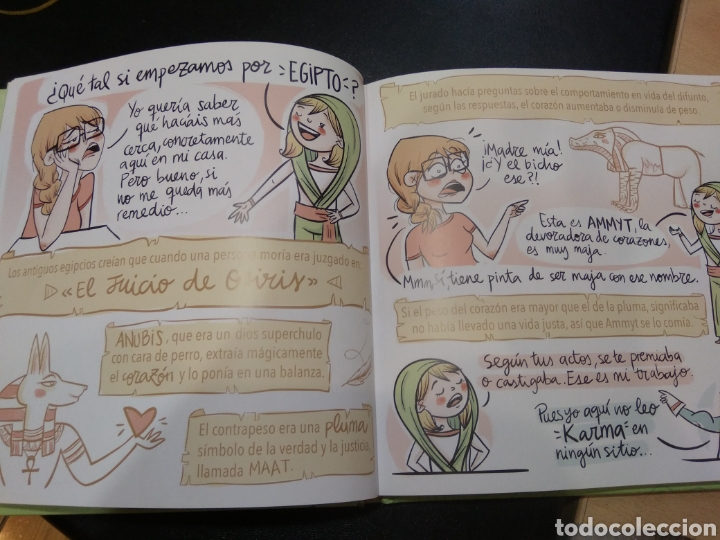 ¿Qué tal si empezamos por EGIPTO?
Yo quería saber
qué hacíais más
cerca, concretamente
aquí en mi casa.
Pero bueno, si
no me queda más
remedio...
Los antiguos egipcios creían que cuando una persona moría era juzgado en:
«El Juicio de Osiris»
ANUBIS, que era un dios superchulo
con cara de perro, extraía mágicamente
el corazón y lo ponía en una balanza.
El contrapeso era una pluma
símbolo de la verdad y la justicia,
llamada MAAT.
El jurado hacía preguntas sobre el comportamiento en vida del difunto,
según las respuestas, el corazón aumentaba o disminuía de peso.
¡Madre mía!
¡¿Y el bicho
ese?!
Esta es AMMYT, la
devoradora de corazones,
es muy maja.
Mmm, sí, tiene pinta de ser maja con ese nombre.
Si el peso del corazón era mayor que el de la pluma, significaba
no había llevado una vida justa, así que Ammyt se lo comía.
Según tus actos, se te premiaba
o castigaba. Ese es mi trabajo.
Pues yo aquí no leo
Karma en
ningún sitio...
todocoleccion